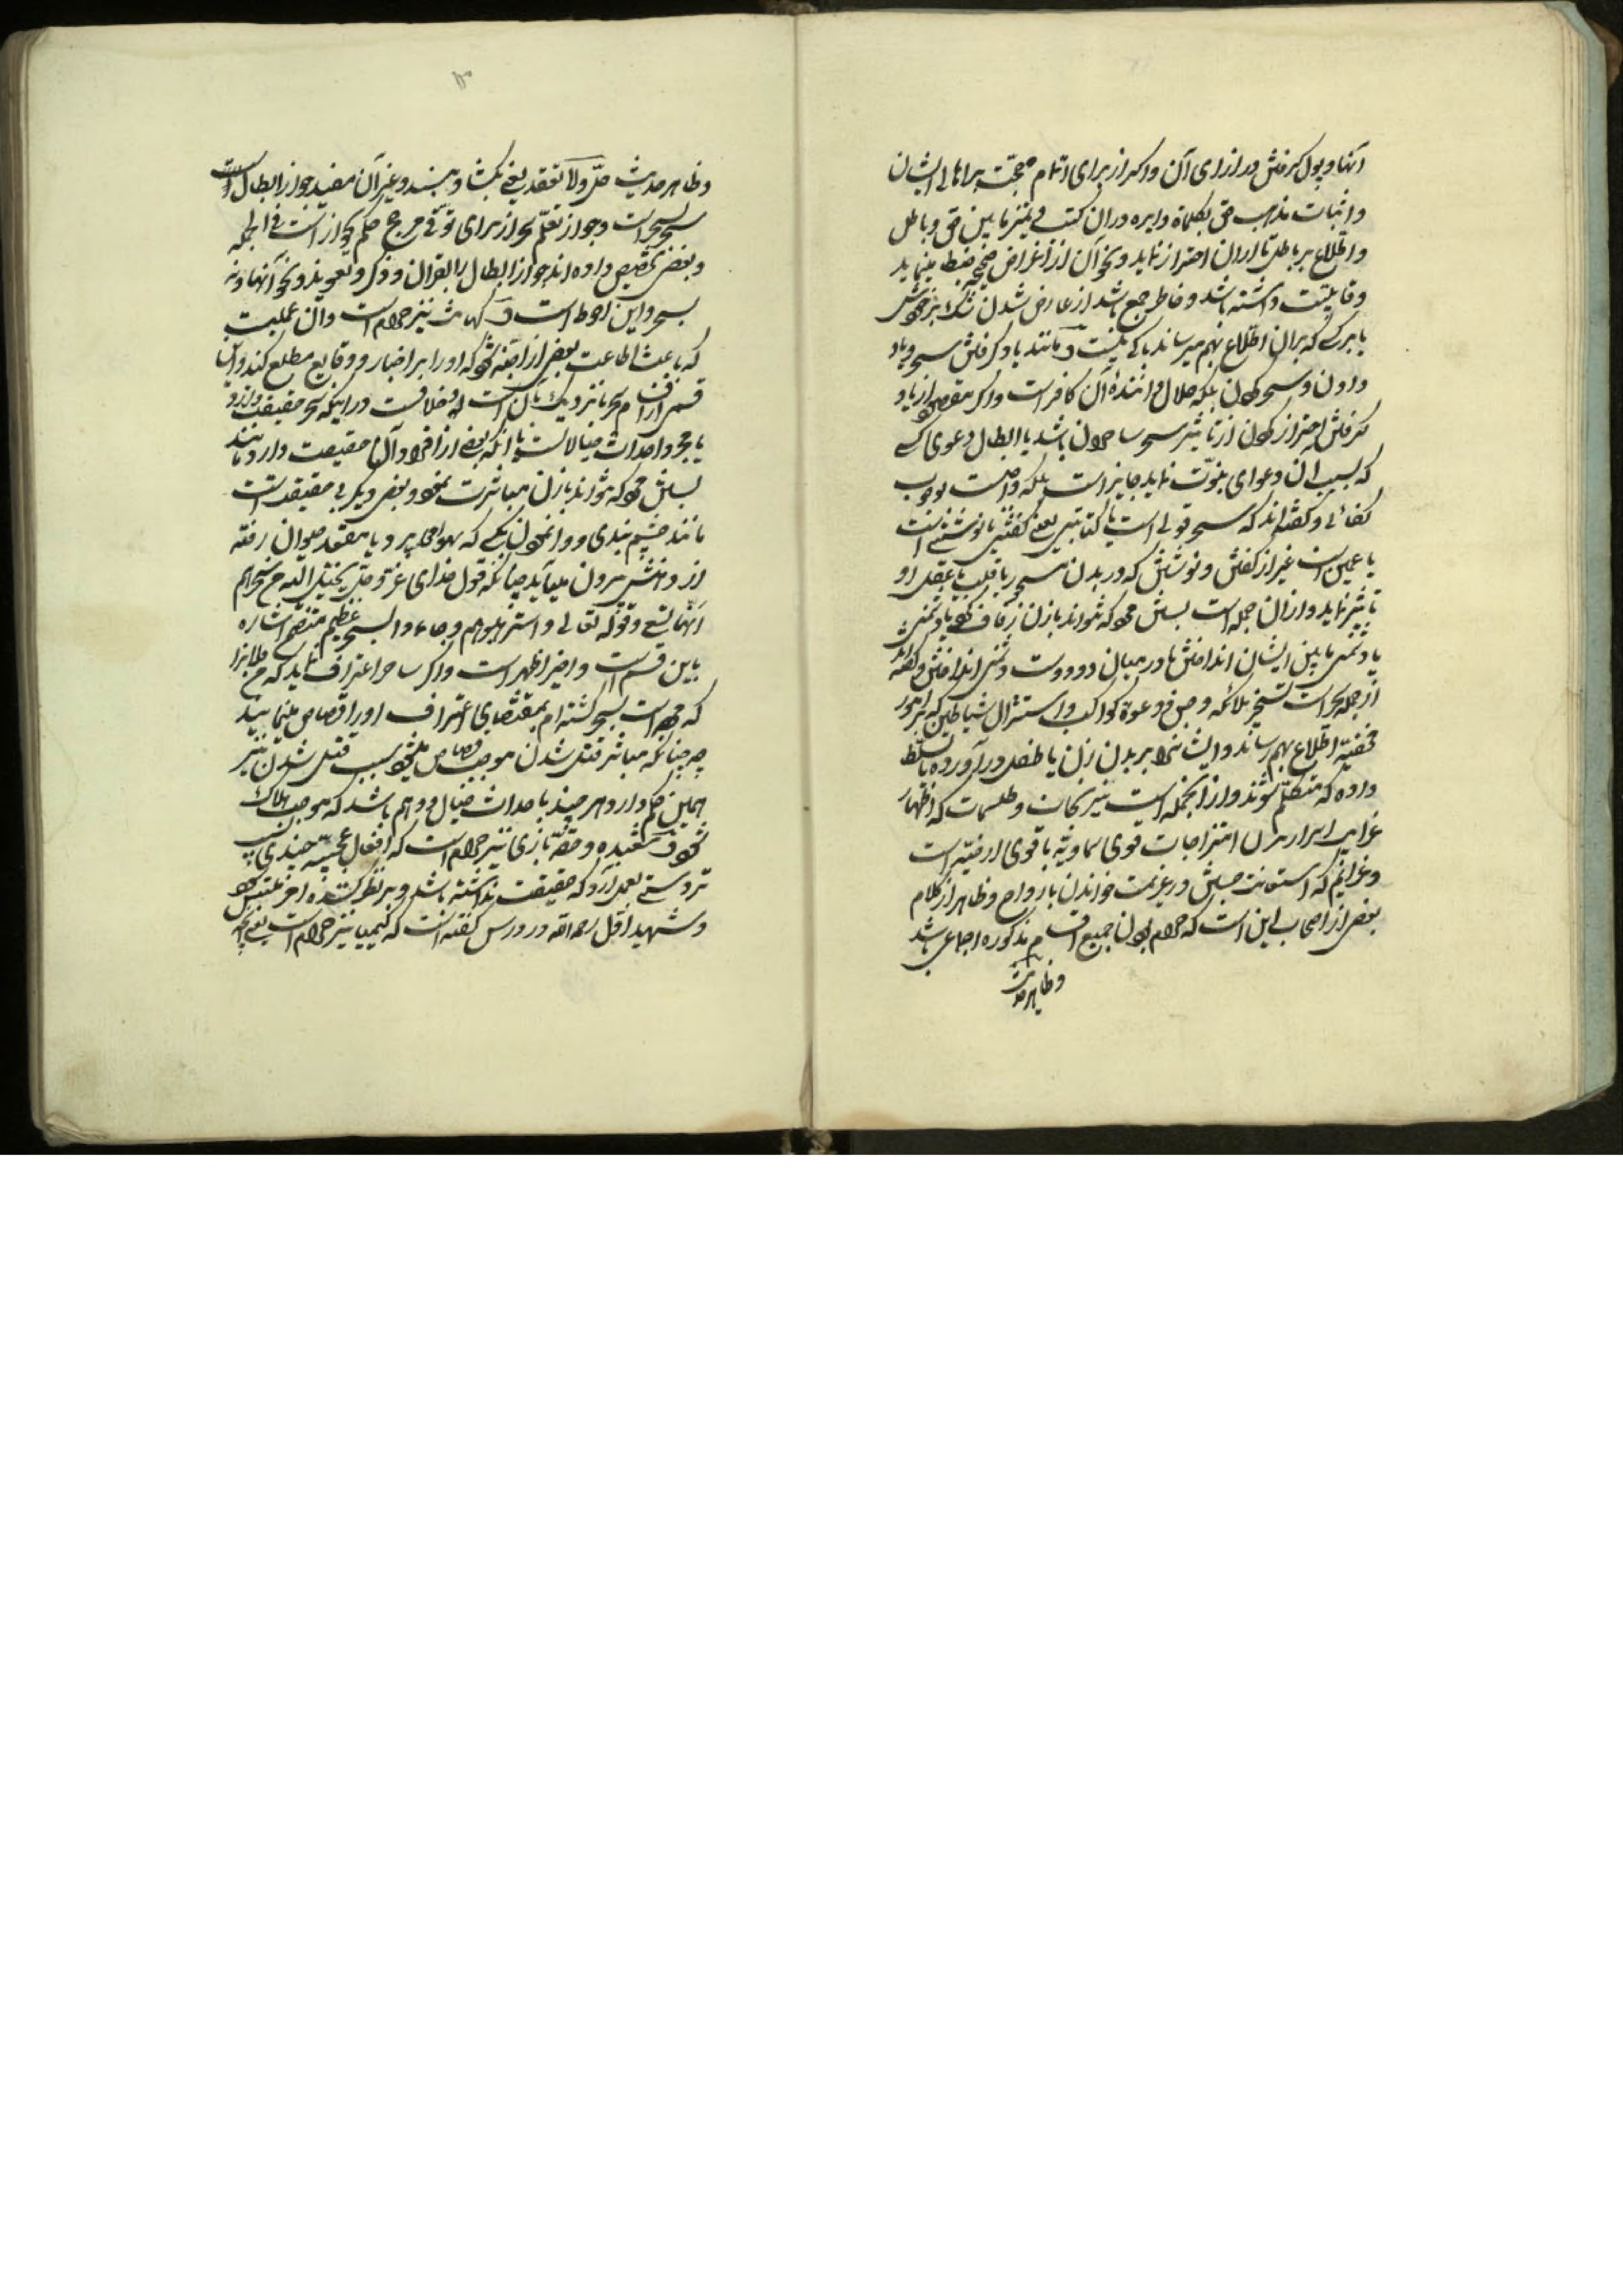 آنها و پول گرفتن در ازای آن و اگر از برای اتمام حجت بر اهالی ایشان
و اثبات مذهب حق بکلماة دایره در ان کتب و تمیز مابین حق و باطل
و اطلاع بر باطل تا از ان احتراز نماید و نحو آن از اغراض صحیحه ضبط مینماید
و قابلیت داشته باشد و خاطر جمع باشد از عارض شدن شک بر خودش
یا بر کسی که بر ان اطلاع بهم میرساند باکی نیست و مانند یاد گرفتن سحر و یاد
دادن و سحر کردن بلکه حلال دانندهٔ آن کافر است و اگر مقصود از یاد
گرفتن احتراز کردن از تاثیر سحر ساحران باشد یا ابطال دعوی کسی
که بسبب ان دعوای نبوّت نماید جایز است بلکه واجبست بوجوب
کفائی و گفته‌اند که سحر قولی است یا کتابتی یعنی گفتنی یا نوشتنی است
یا عملی است غیر از گفتن و نوشتن که در بدن مسحور یا قلب یا عقل او
تاثیر نماید و از ان جمله است بستن مرد که نتواند با زن زفاف کند یا دشمنی
یا دشمنی مابین ایشان انداختن یا در میان دو دوست دشمنی انداختن و گفته‌اند
از جمله سحر است تسخیر ملائکه و جن و دعوة کواکب و استنزال شیاطین که بر امور
مخفیّه اطلاع بهم رساند و ایشانرا بر بدن زن یا طفل در آورده تسلّط
داده که متکلّم شوند و از انجمله است نیرنجات و طلسمات که اظهار
غرایب اسرار بران امتزاجات قوی سماویّه با قوی ارضیّه است
و عزایم که استعانت جستن و عزیمت خواندن بارواح و ظاهر از کلام
بعضی از اصحاب این است که حرام بودن جمیع اقسام مذکوره اجماعی باشد
و ظاهر حدیث
و ظاهر حدیث حلّ و لا تعقد یعنی بگشا و مبند و غیر آن مفید جواز ابطال است
بسحر است و جواز تعلّم سحر از برای توقّی مرجع حکم بجواز است فی الجمله
و بعضی تخصیص داده‌اند جواز ابطال را بقران و ذکر و تعویذ و نحو آنها و نه
بسحر و این احوط است و کهانت نیز حرام است و آن عملیست
که باعث اطاعت بعضی از اجنّه شود که او را بر اخبار و وقایع مطلع کند و آیا
قسمی از اقسام سحر یا نزدیک بآن است و خلافست در اینکه سحر حقیقت دارد و
یا مجرد احداث خیالاتست یا انکه بعضی از افراد آن حقیقت دارد مانند
بستن مرد که نتواند با زن مباشرت نمود و بعضی دیگر بی حقیقت است
مانند چشم بندی و وانمودن بکسی که بهوا میپرد یا بمقعد حیوان رفته
از دهنش بیرون میاید چنانکه قول خدای عزّ و جلّ یخیّل الیه من سحرهم
انّها تسعی و قوله تعالی و استرهبوهم و جاءوا بسحر عظیم متضمن اشاره
باین قسم است و اخیر اظهر است و اگر ساحر اعتراف نماید که من فلانرا
که مرده است بسحر کشته‌ام بمقتضای اعتراف او را قصاص مینمایند
چه چنانکه مباشر قتل شدن موجب قصاص میشود سبب قتل شدن نیز
همین حکم دارد هر چند باحداث خیال و وهم باشد که موجب هلاک
شود و شعبده و حقّه بازی نیز حرام است که افعال عجیبه چندی بسبب
تردستی بعمل آرد که حقیقت نداشته باشد و بر نظر کننده امر ملتبس شود
و شهید اوّل رحمه الله در دروس گفته است که کیمیا نیز حرام است یعنی